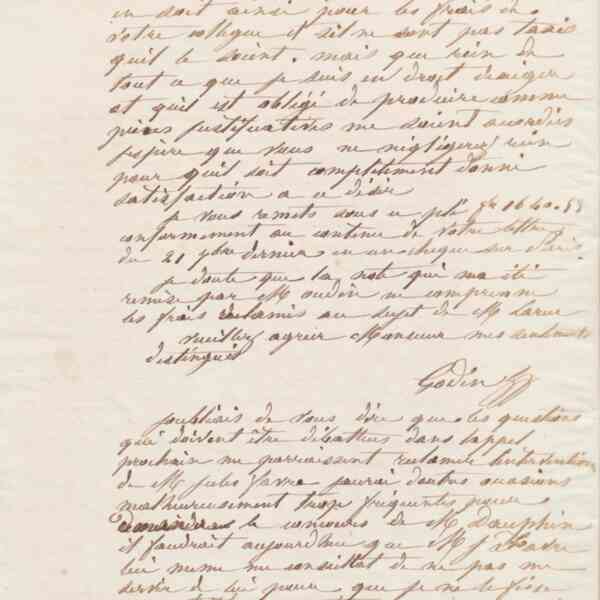 en soit ainsi pour les frais de
votre collegue et s'il ne sont pas taxés
quil le soient. mais que rien de
tout ce que je suis en droit dexiger
et quil est obligé de produire comme
pièces justificatives me soient accordés
jespère que vous ne négligerez rien
pour quil soit completement donné
satisfaction a ce désir
je vous remets sous ce pli fr 1640.
conformement au contenu de votre lettre
du 21 7bre dernier en un cheque sur Paris.
je doute que la note qui ma été
remise par M oudin ne comprenne
les frais réclamés au sujet de M Larue
veuillez agréer Monsieur mes sentiments
distingués
Godin
joubliais de vous dire que les questions
qui doivent être débattues dans lappel
prochain me paraissent réclamer lintervention
de M Jules favre jaurai dautres occasions
malheureusement trop fréquentes pour
demander le concours de M Dauphin
il faudrait aujourdhui que M J favre
lui meme me conseillat de ne pas me
servir de lui pour que je ne le fisse